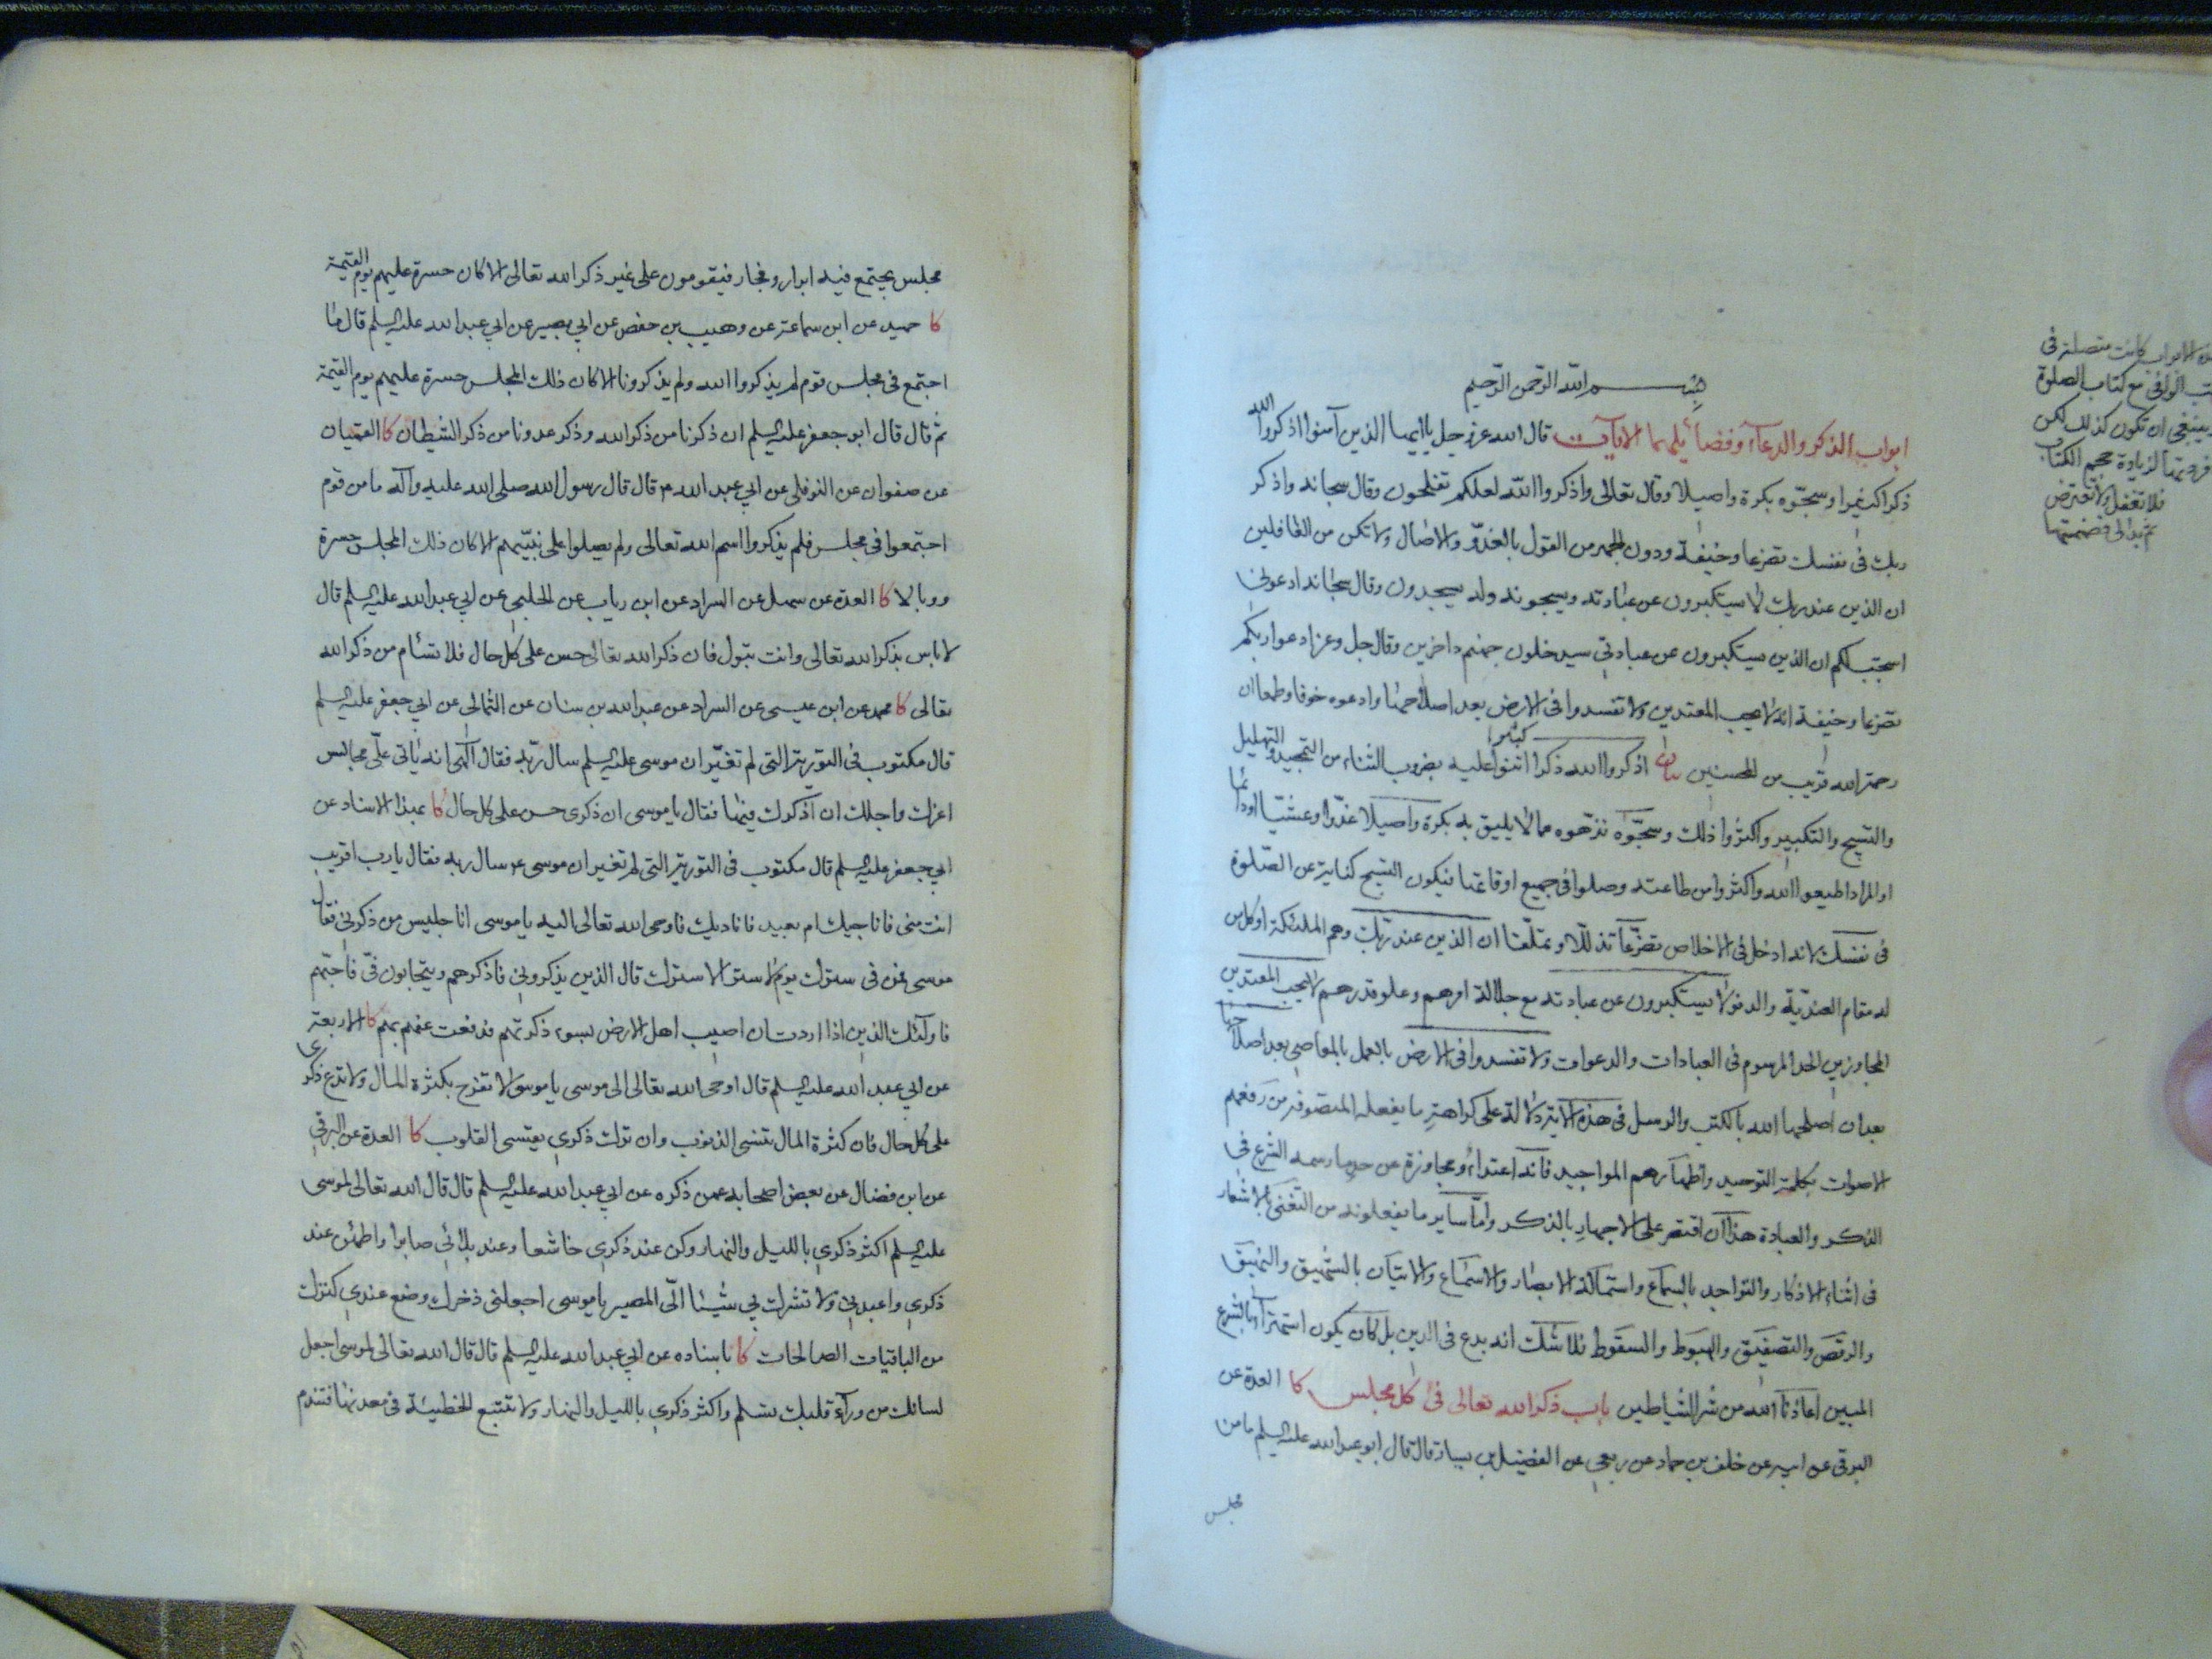 بسم الله الرحمن الرحيم
ابواب الذكر والدعاء وفضائلهما الايات قال الله عز وجل يا ايها الذين آمنوا اذكروا الله
ذكرا كثيرا وسبحوه بكرة واصيلا وقال تعالى واذكروا الله لعلكم تفلحون وقال سبحانه واذكر
ربك فى نفسك تضرعا وخيفة ودون الجهر من القول بالغدو والاصال ولا تكن من الغافلين
ان الذين عند ربك لا يستكبرون عن عبادته ويسبحونه وله يسجدون وقال سبحانه ادعونى
استجب لكم ان الذين يستكبرون عن عبادتى سيدخلون جهنم داخرين وقال جل وعز ادعوا ربكم
تضرعا وخيفة انه لا يحب المعتدين ولا تفسدوا فى الارض بعد اصلاحها وادعوه خوفا وطمعا ان
رحمة الله قريب من المحسنين بيان اذكروا الله ذكرا كثيرا اثنوا عليه بضروب الثناء من التمجيد والتهليل
والتسبيح والتكبير واكثروا ذلك وسبحوه نزهوه عما لا يليق به بكرة واصيلا غدوا وعشيا او دائما
او المراد اطيعوا الله واكثروا من طاعته وصلوا فى جميع اوقاتها فيكون التسبيح كناية عن الصلوة
فى نفسك لانه ادخل فى الاخلاص تضرعا تذللا وتملقا ان الذين عند ربك وهم الملئكة او كل من
له مقام العندية والدنو لا يستكبرون عن عبادته مع جلالة امرهم وعلو قدرهم لا يحب المعتدين
المجاوزين الحد المرسوم فى العبادات والدعوات ولا تفسدوا فى الارض بالعمل بالمعاصى بعد اصلاحها
بعد ان اصلحها الله بالكتب والرسل فى هذه الآية دلالة على كراهة ما يفعله المتصوفة من رفعهم
الاصوات بكلمة التوحيد واظهارهم المواجيد فانه اعتداء ومجاوزة عن حد ما رسمه الشرع فى
الذكر والعبادة هذا ان اقتصر على الاجهار بالذكر واما ساير ما يفعلونه من التغنى بالاشعار
فى اثناء الاذكار والتواجد بالسماع واستمالة الابصار والاسماع والاتيان بالشهيق والنهيق
والرقص والتصفيق والهبوط والسقوط فلا شك انه بدع فى الدين بل كان يكون استهزاء بالشرع
المبين اعاذنا الله من شر الشياطين باب ذكر الله تعالى فى كل مجلس كا العدة عن
البرقى عن ابيه عن خلف بن حماد عن ربعى عن الفضيل بن يسار قال قال ابو عبد الله عليه السلم ما من
مجلس
الابواب كانت متصلة فى
الوافى مع كتاب الصلوة
ينبغى ان تكون كذلك لكن
لزيادة حجم الكتاب
فلا تغفل ولا تعترض
مجلس يجتمع فيه ابرار وفجار فيقومون على غير ذكر الله تعالى الا كان حسرة عليهم يوم القيمة
كا حميد عن ابن سماعة عن وهيب بن حفص عن ابى بصير عن ابى عبد الله عليه السلم قال ما
اجتمع فى مجلس قوم لم يذكروا الله ولم يذكرونا الا كان ذلك المجلس حسرة عليهم يوم القيمة
ثم قال قال ابو جعفر عليه السلم ان ذكرنا من ذكر الله وذكر عدونا من ذكر الشيطان كا القميان
عن صفوان عن النوفلى عن ابى عبد الله ع قال قال رسول الله صلى الله عليه وآله ما من قوم
اجتمعوا فى مجلس فلم يذكروا اسم الله تعالى ولم يصلوا على نبيهم الا كان ذلك المجلس حسرة
ووبالا كا العدة عن سهل عن السراد عن ابن رياب عن الحلبى عن ابى عبد الله عليه السلم قال
لا باس بذكر الله تعالى وانت تبول فان ذكر الله تعالى حسن على كل حال فلا تسئام من ذكر الله
تعالى كا محمد عن ابن عيسى عن السراد عن عبد الله بن سنان عن الثمالى عن ابى جعفر عليه السلم
قال مكتوب فى التورية التى لم تغير ان موسى عليه السلم سال ربه فقال الهى انه ياتى على مجالس
اعزك واجلك ان اذكرك فيها فقال يا موسى ان ذكرى حسن على كل حال كا بهذا الاسناد عن
ابى جعفر عليه السلم قال مكتوب فى التورية التى لم تغير ان موسى ع سال ربه فقال يا رب اقريب
انت منى فاناجيك ام بعيد فاناديك فاوحى الله تعالى اليه يا موسى انا جليس من ذكرنى فقال
موسى فمن فى سترك يوم لا ستر الا سترك قال الذين يذكرونى فاذكرهم ويتحابون فى فاحبهم
فاولئك الذين اذا اردت ان اصيب اهل الارض بسوء ذكرتهم فدفعت عنهم بهم كا الاربعة
عن ابى عبد الله عليه السلم قال اوحى الله تعالى الى موسى يا موسى لا تفرح بكثرة المال ولا تدع ذكرى
على كل حال فان كثرة المال تنسى الذنوب وان ترك ذكرى يقسى القلوب كا العدة عن البرقى
عن ابن فضال عن بعض اصحابه عمن ذكره عن ابى عبد الله عليه السلم قال قال الله تعالى لموسى
عليه السلم اكثر ذكرى بالليل والنهار وكن عند ذكرى خاشعا وعند بلائى صابرا واطمئن عند
ذكرى واعبدنى ولا تشرك بى شيئا الى المصير يا موسى اجعلنى ذخرك وضع عندى كنزك
من الباقيات الصالحات كا باسناده عن ابى عبد الله عليه السلم قال قال الله تعالى لموسى اجعل
لسانك من وراء قلبك تسلم واكثر ذكرى بالليل والنهار ولا تتبع الخطيئة فى معدنها فتندم